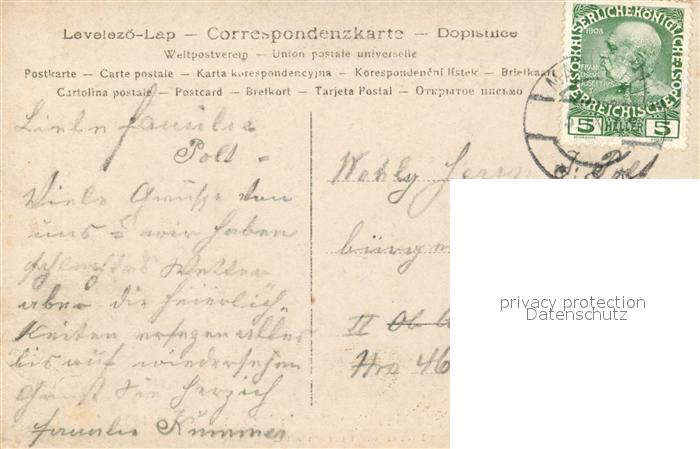 Levelező-Lap — Correspondenzkarte — Dopisnice
Weltpostverein — Union postale universelle
Postkarte — Carte postale — Karta korespondencyjna — Korespondenční lístek — Brefkaart
Cartolina postale — Postcard — Brefkort — Tarjeta Postal — Открытое письмо
KAISERLICHEKÖNIGLICHEÖSTERREICHISCHEPOST
1908
5 HELLER 5
Liebe Familie
Polt -
Viele Grüsse von
uns - wir haben
schlechtes Wetter
aber die feierlich
Keiten ersegen alles
bis auf wiedersehen
Grüsst Sie herzich
familie Kummer
Wohly Herrn
bürger
II
Nro 46
privacy protection
Datenschutz